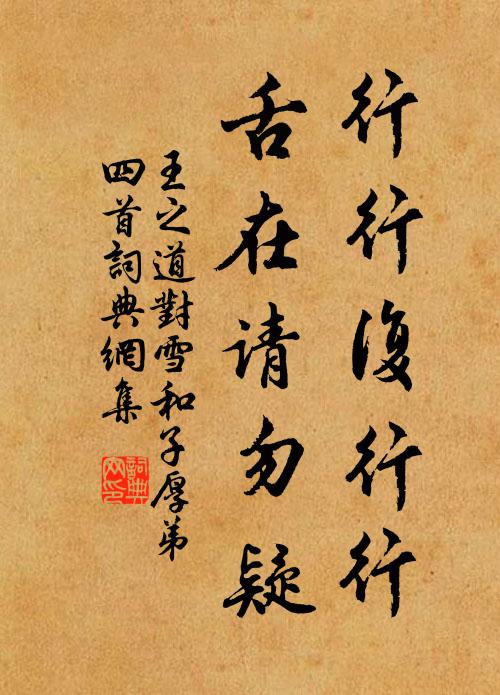 行行復行行
舌在请勿疑
王之道對雪和子厚弟
四首詞典網集
詞典
网印